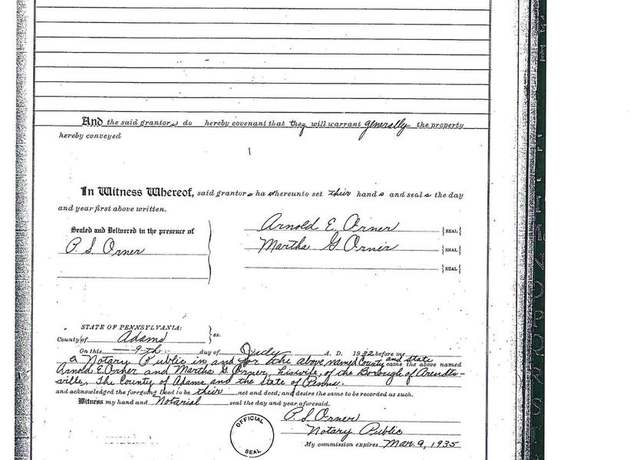 And the said grantors do hereby covenant that they will warrant generally the property
hereby conveyed
In Witness Whereof, said grantors ha hereunto set their hands and seals the day
and year first above written.
Sealed and Delivered in the presence of
P. S. Orner
Arnold E. Orner {SEAL}
Martha G Orner {SEAL}
{SEAL}
STATE OF PENNSYLVANIA:
County of Adams } ss:
On this 9th day of July A. D. 1932 before me
a Notary Public in and for the above named County and State came the above named
Arnold E. Orner and Martha G. Orner, his wife of the Borough of Arendts-
ville, The County of Adams and the State of Penna.
and acknowledged the foregoing Deed to be their act and deed; and desire the same to be recorded as such.
Witness my hand and Notarial seal the day and year aforesaid.
OFFICIAL SEAL
P. S. Orner
Notary Public
My commission expires Mar. 9, 1935